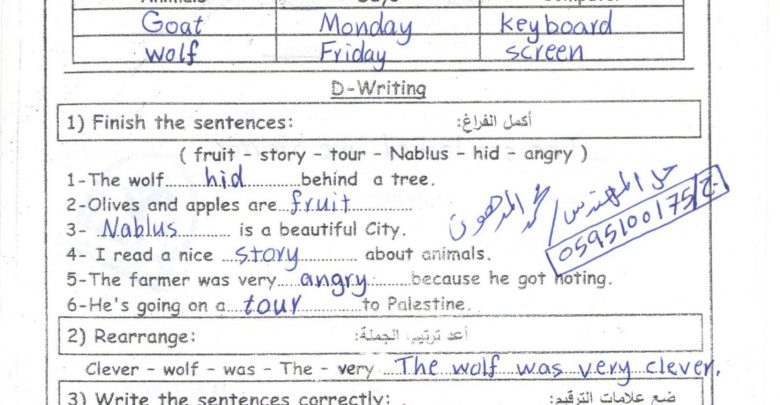 Goat Monday keyboard
wolf Friday screen
D-Writing
1) Finish the sentences: أكمل الفراغ:
( fruit - story - tour - Nablus - hid - angry )
1-The wolf......hid............behind a tree.
2-Olives and apples are..fruit............
3- ..Nablus....... is a beautiful City.
4- I read a nice ..story............ about animals.
5-The farmer was very....angry........because he got noting.
6-He's going on a...tour............to Palestine.
حل المهندس / محمد المدهون
0595100175/ج
2) Rearrange: أعد ترتيب الجملة:
Clever - wolf - was - The - very ...The wolf was very clever.
3) Write the sentences correctly: ضع علامات الترقيم: